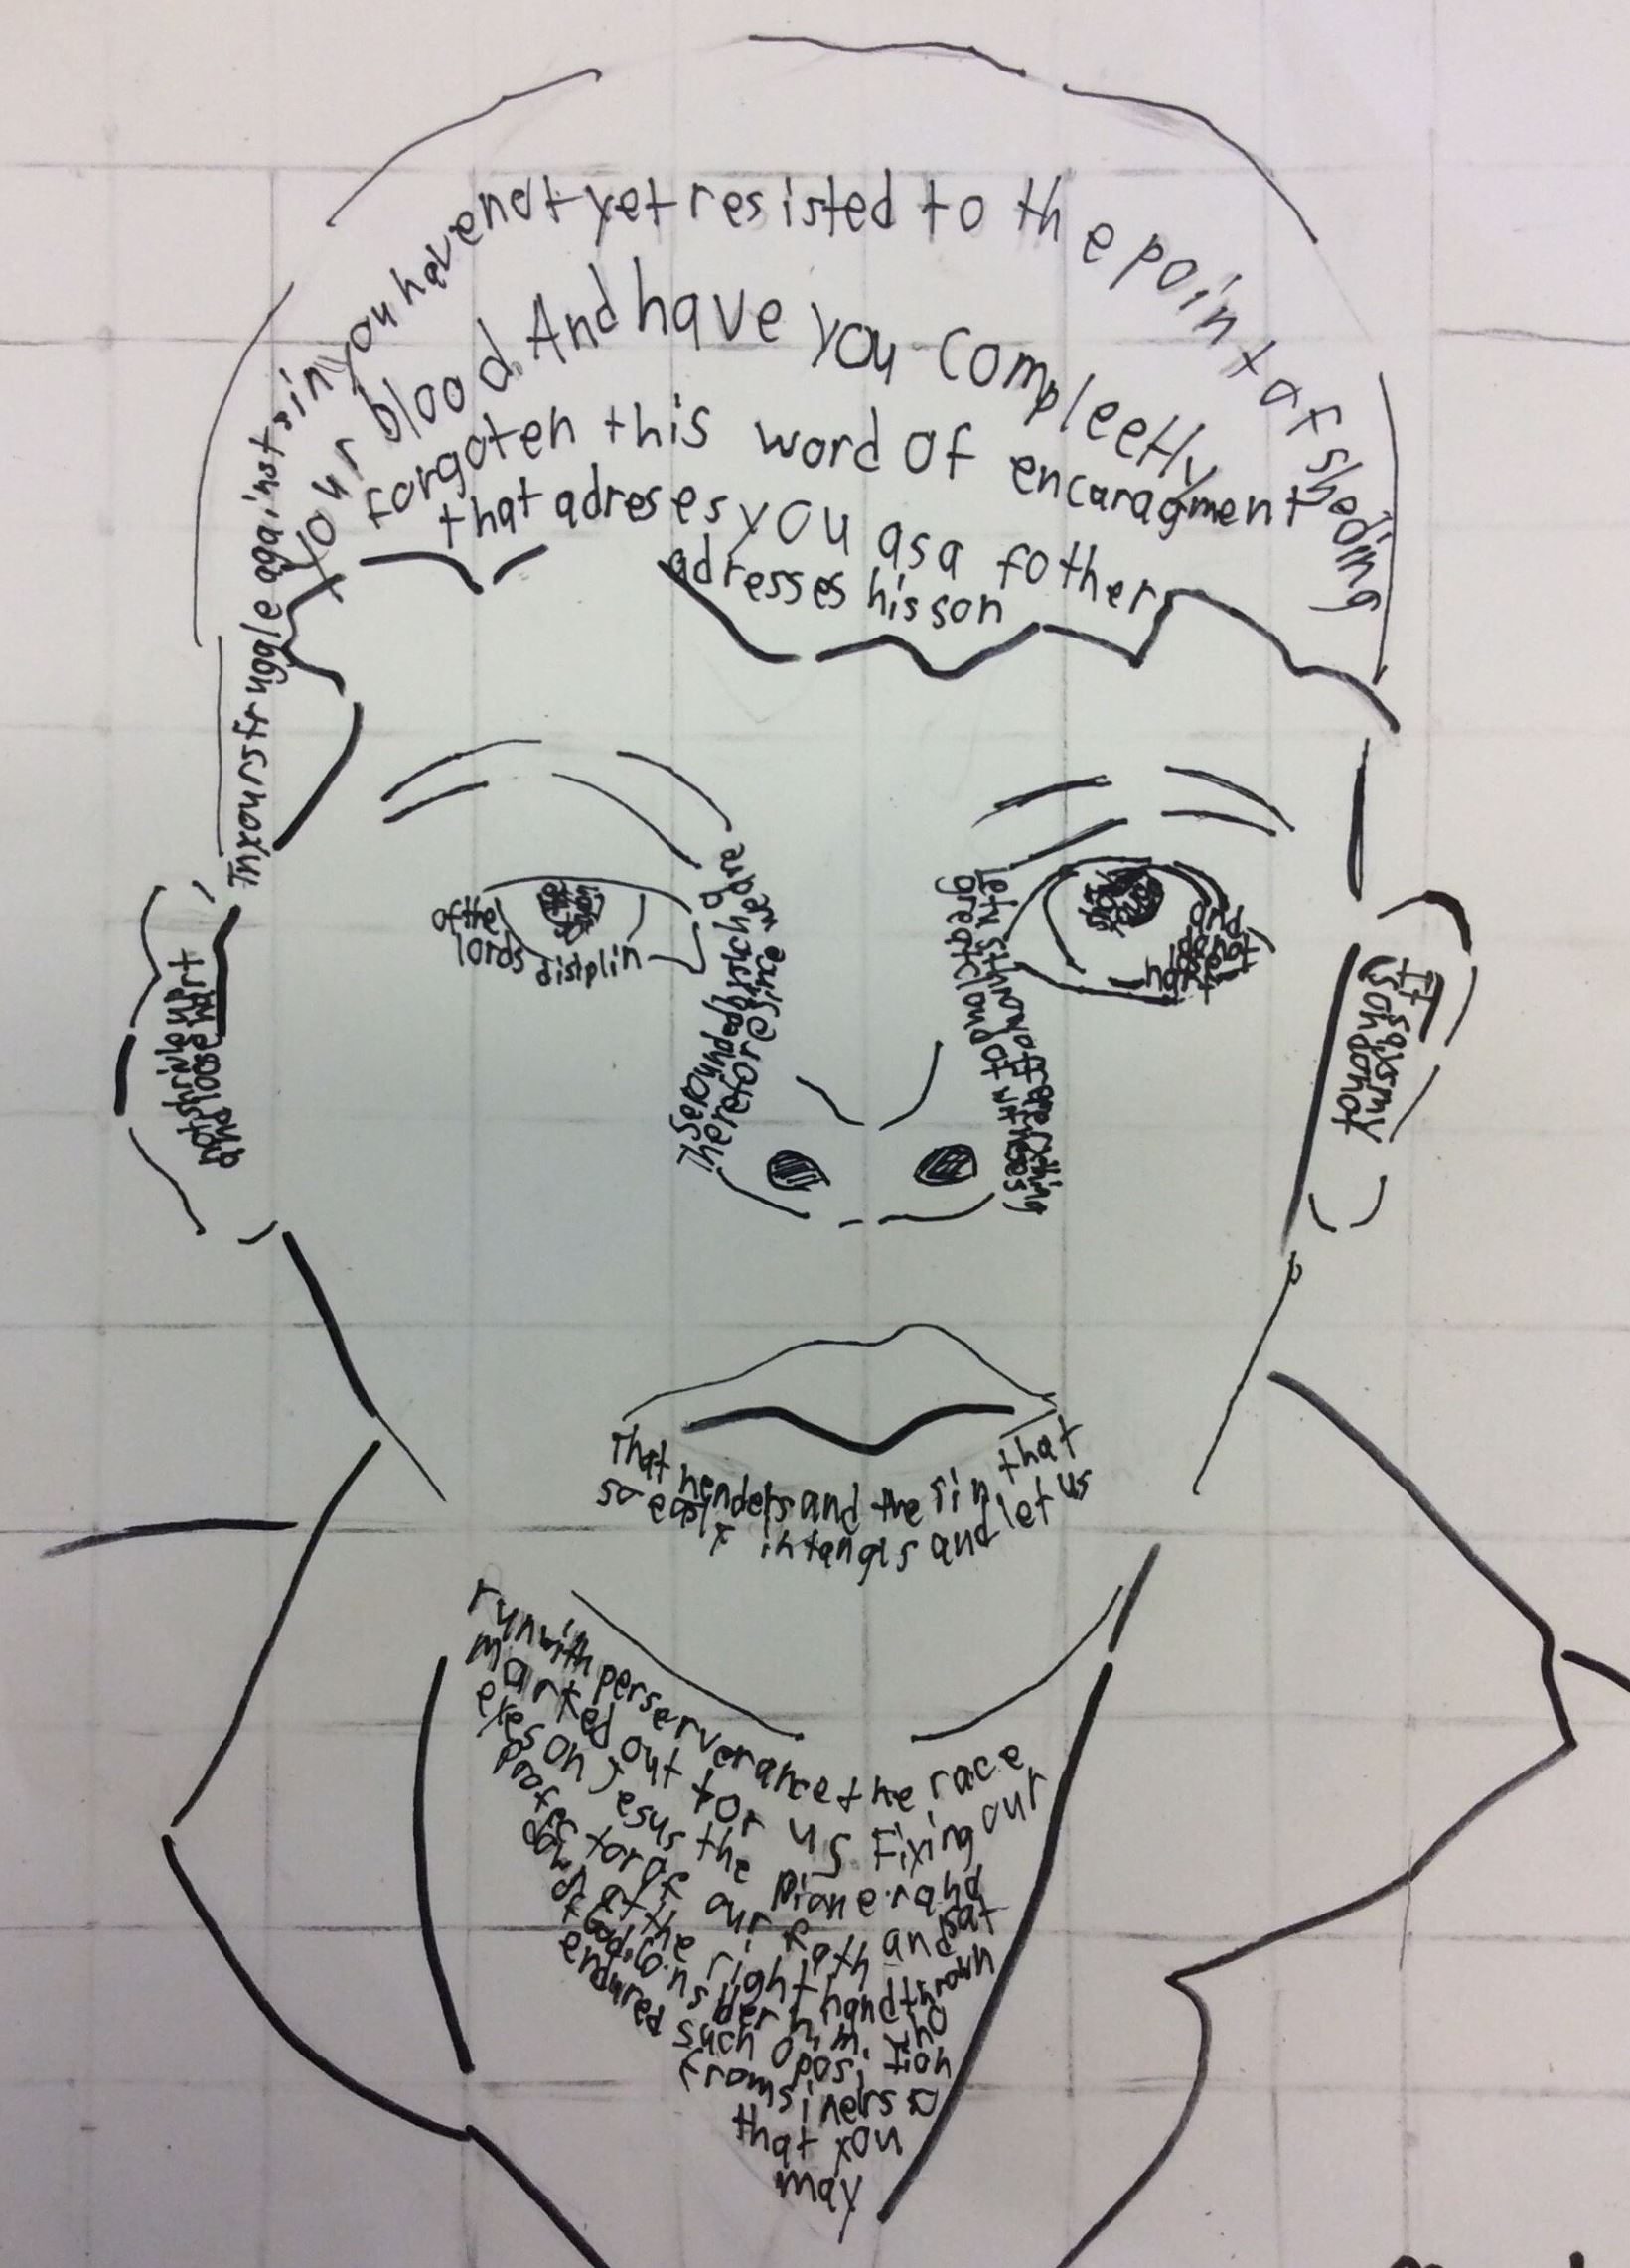 In your struggle against sin you have not yet resisted to the point of sheding
your blood. And have you compleetly
forgoten this word of encaragment
that adreses you as a father
adresses his son
Therefore since we are
serounded by such a
great cloud of witnesses
let us throw off everything
That henders and the sin that
so easly intangls and let us
run with perserverance the race
marked out for us. Fixing our
eyes on Jesus the pioner and
of our fath and sat
down at the right hand
of God. Consider him. who
endured such oposition
from siners so
that you
may
not shrivle up
and loose hart
It says my
son do not
of the
lords disiplin
and
do not